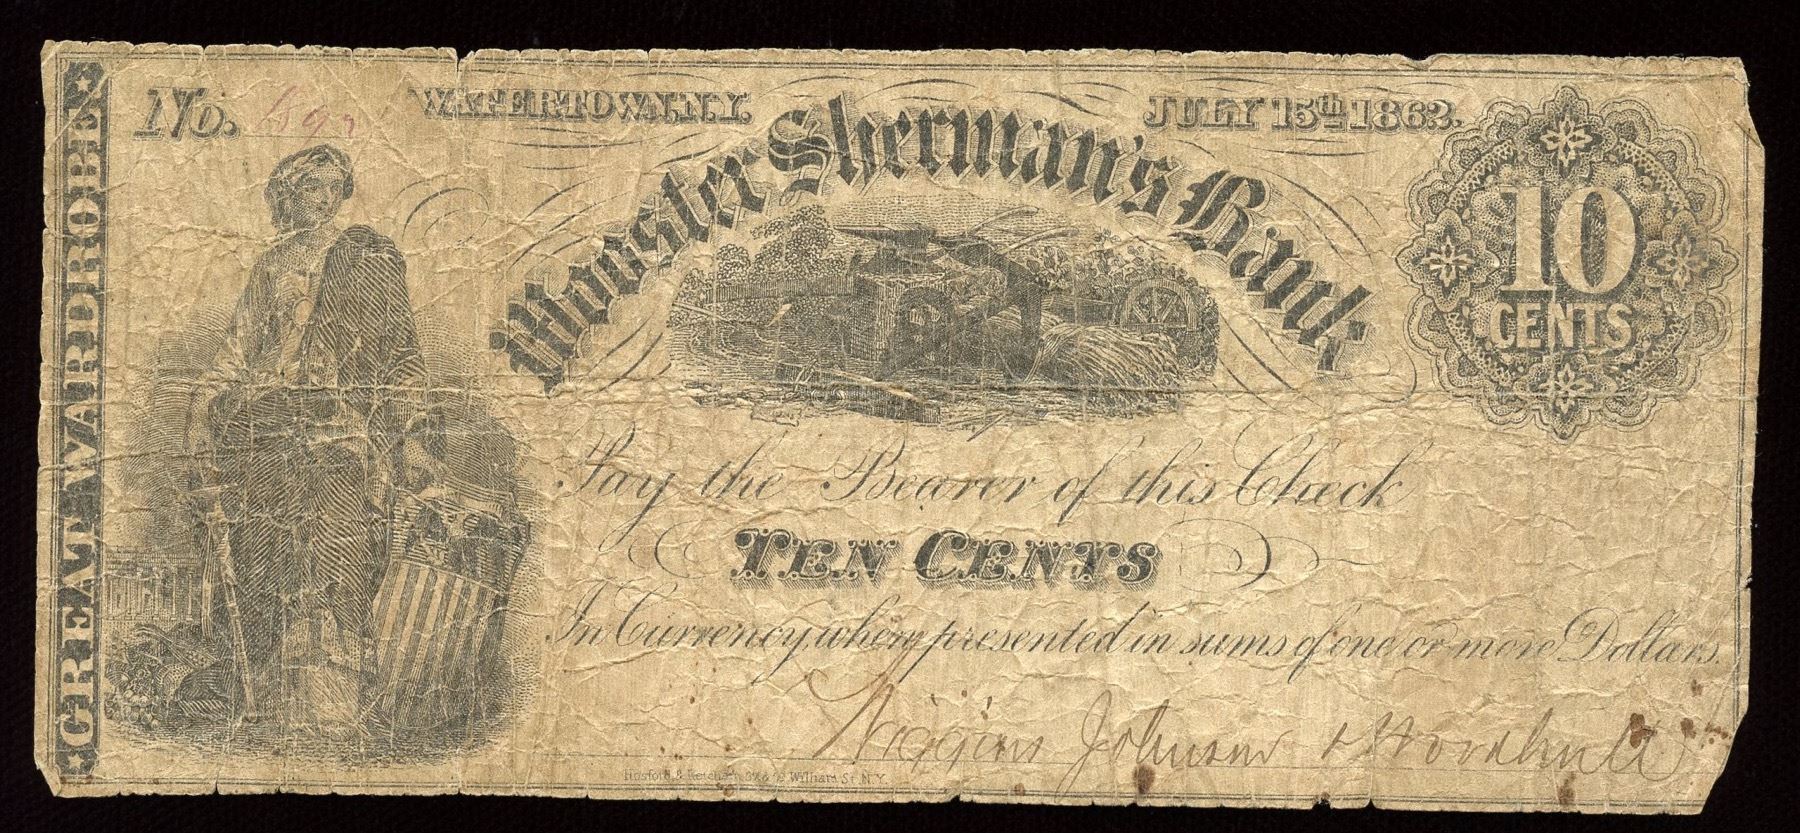 GREAT WARDROBE
No.
WATERTOWN, N.Y.
JULY 15th 1862.
Wooster Sherman's Bank
10
CENTS
Pay the Bearer of this Check
TEN CENTS
In Currency, when presented in sums of one or more Dollars.
Wiggins Johnson & Woodruff
Hosford & Ketcham, William St. N.Y.